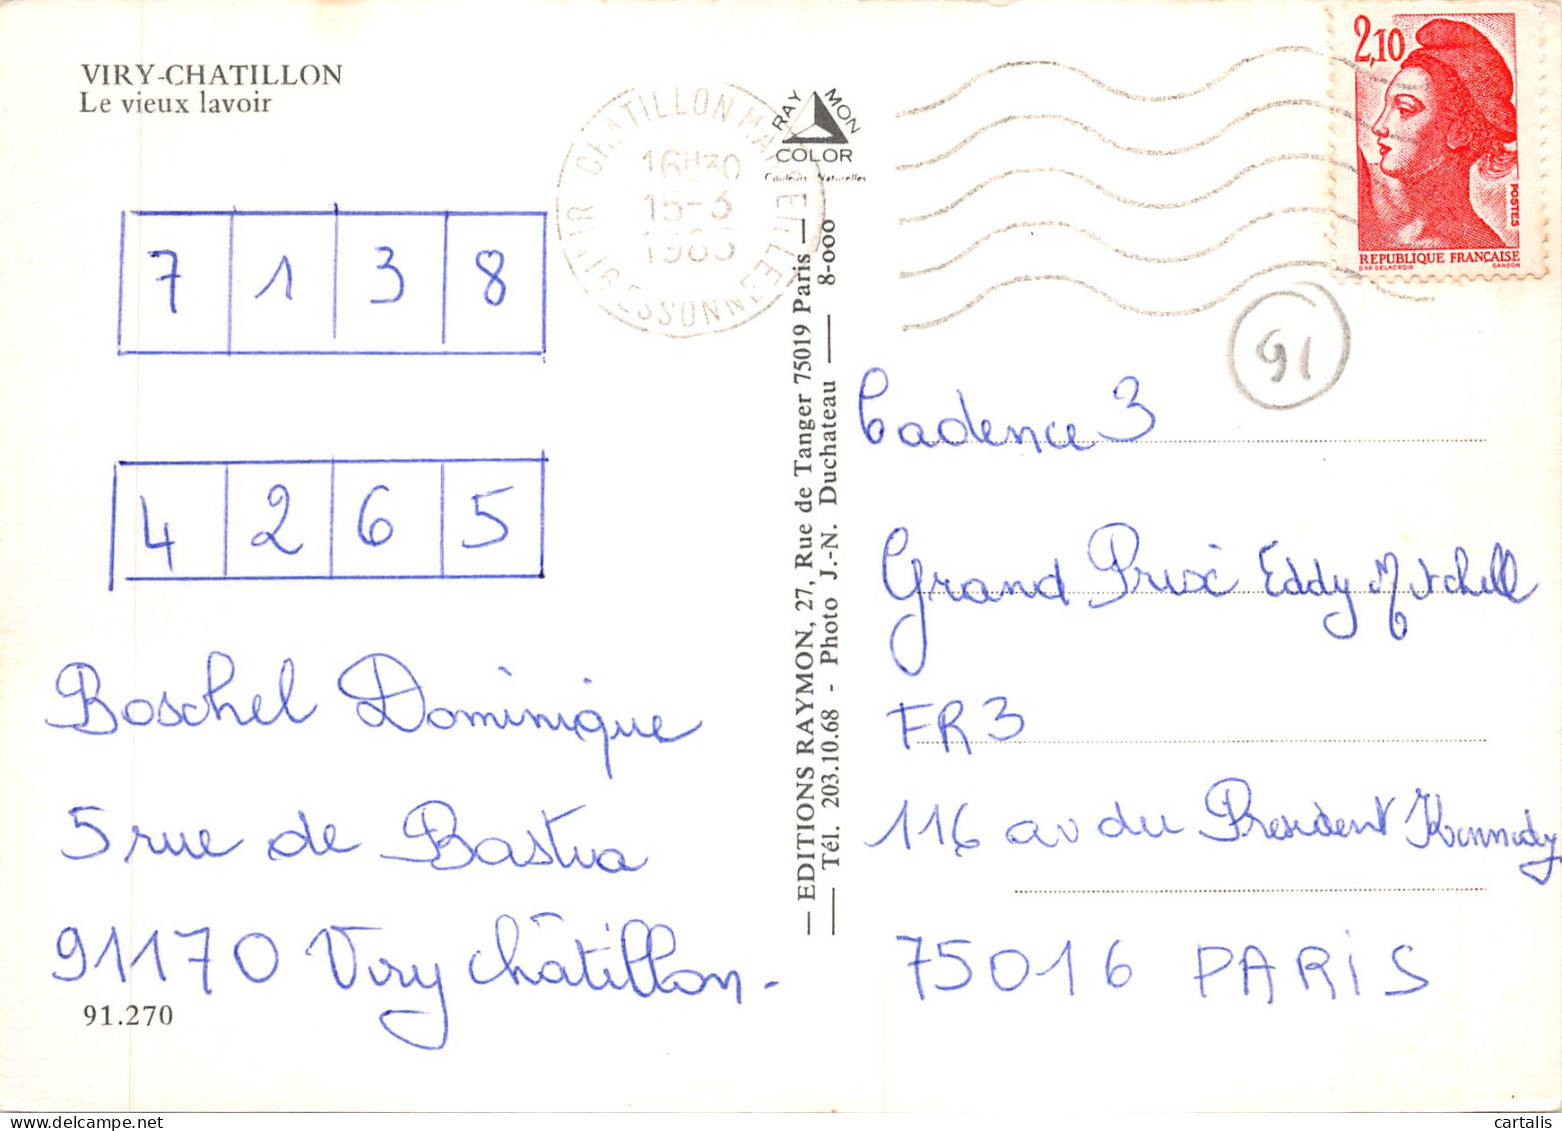 VIRY-CHATILLON
Le vieux lavoir
7 1 3 8
4 2 6 5
Boschel Dominique
5 rue de Bastia
91170 Viry châtillon-
91.270
16H30
15-3
RAYMON
COLOR
Couleurs Naturelles
EDITIONS RAYMON, 27, Rue de Tanger 75019 Paris
Tél. 203.10.68 - Photo J.-N. Duchateau 8-000
2,10
POSTES
REPUBLIQUE FRANÇAISE
D'AP. DELACROIX GANDON
91
Cadence 3
Grand Prix Eddy Mitchell
FR3
116 av du President Kennedy
75016 PARIS
cartalis